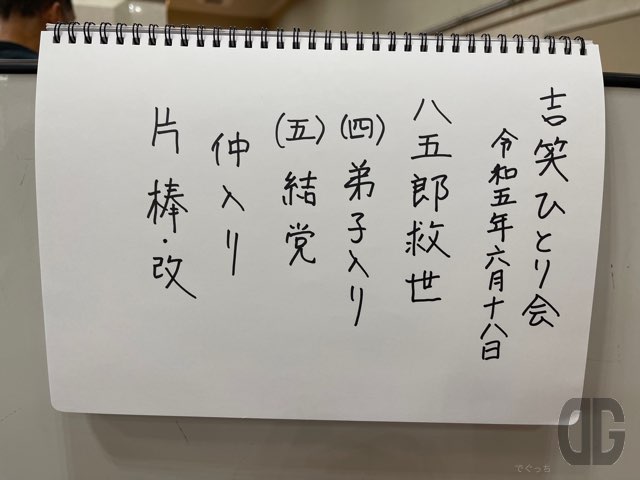 吉笑ひとり会
令和五年六月十八日
八五郎救世
(四)弟子入り
(五)結党
仲入り
片棒・改
DG
でぐっち